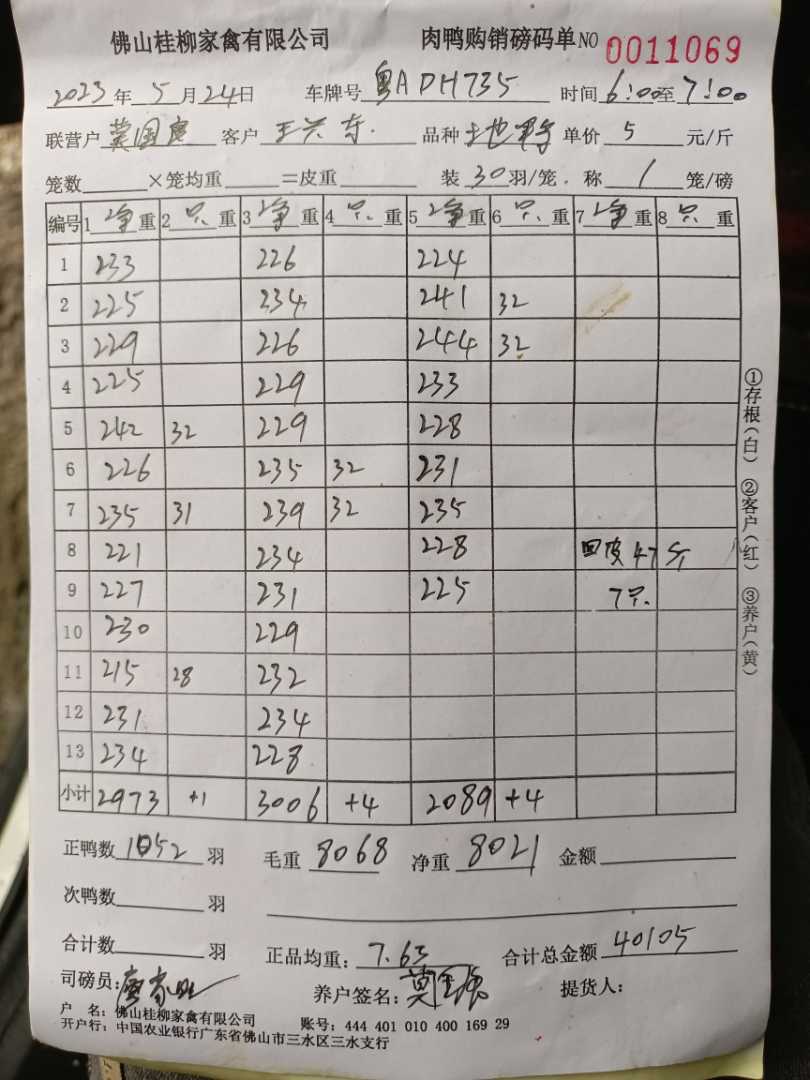 佛山桂柳家禽有限公司 肉鸭购销磅码单NO 0011069
2023年5月24日 车牌号粤ADH735 时间6:00至7:00
联营户莫国 客户王兴 品种土 单价5元/斤
笼数 ×笼均重 =皮重 装30羽/笼．称1笼/磅
编号 1净重 2只重 3净重 4只重 5净重 6只重 7净重 8只重
1 233 226 224
2 225 234 241 32
3 229 226 244 32
4 225 229 233
5 242 32 229 228
6 226 235 32 231
7 235 31 239 32 235
8 221 234 228 回皮47斤
9 227 231 225 7只
10 230 229
11 215 28 232
12 231 234
13 234 228
小计 2973 +1 3006 +4 2089 +4
正鸭数1052羽 毛重8068 净重8021 金额
次鸭数 羽
合计数 羽 正品均重：7.63 合计总金额40105
司磅员： 养户签名：莫 提货人：
户 名：佛山桂柳家禽有限公司 账号：444 401 010 400 169 29
开户行：中国农业银行广东省佛山市三水区三水支行
①存根（白） ②客户（红） ③养户（黄）